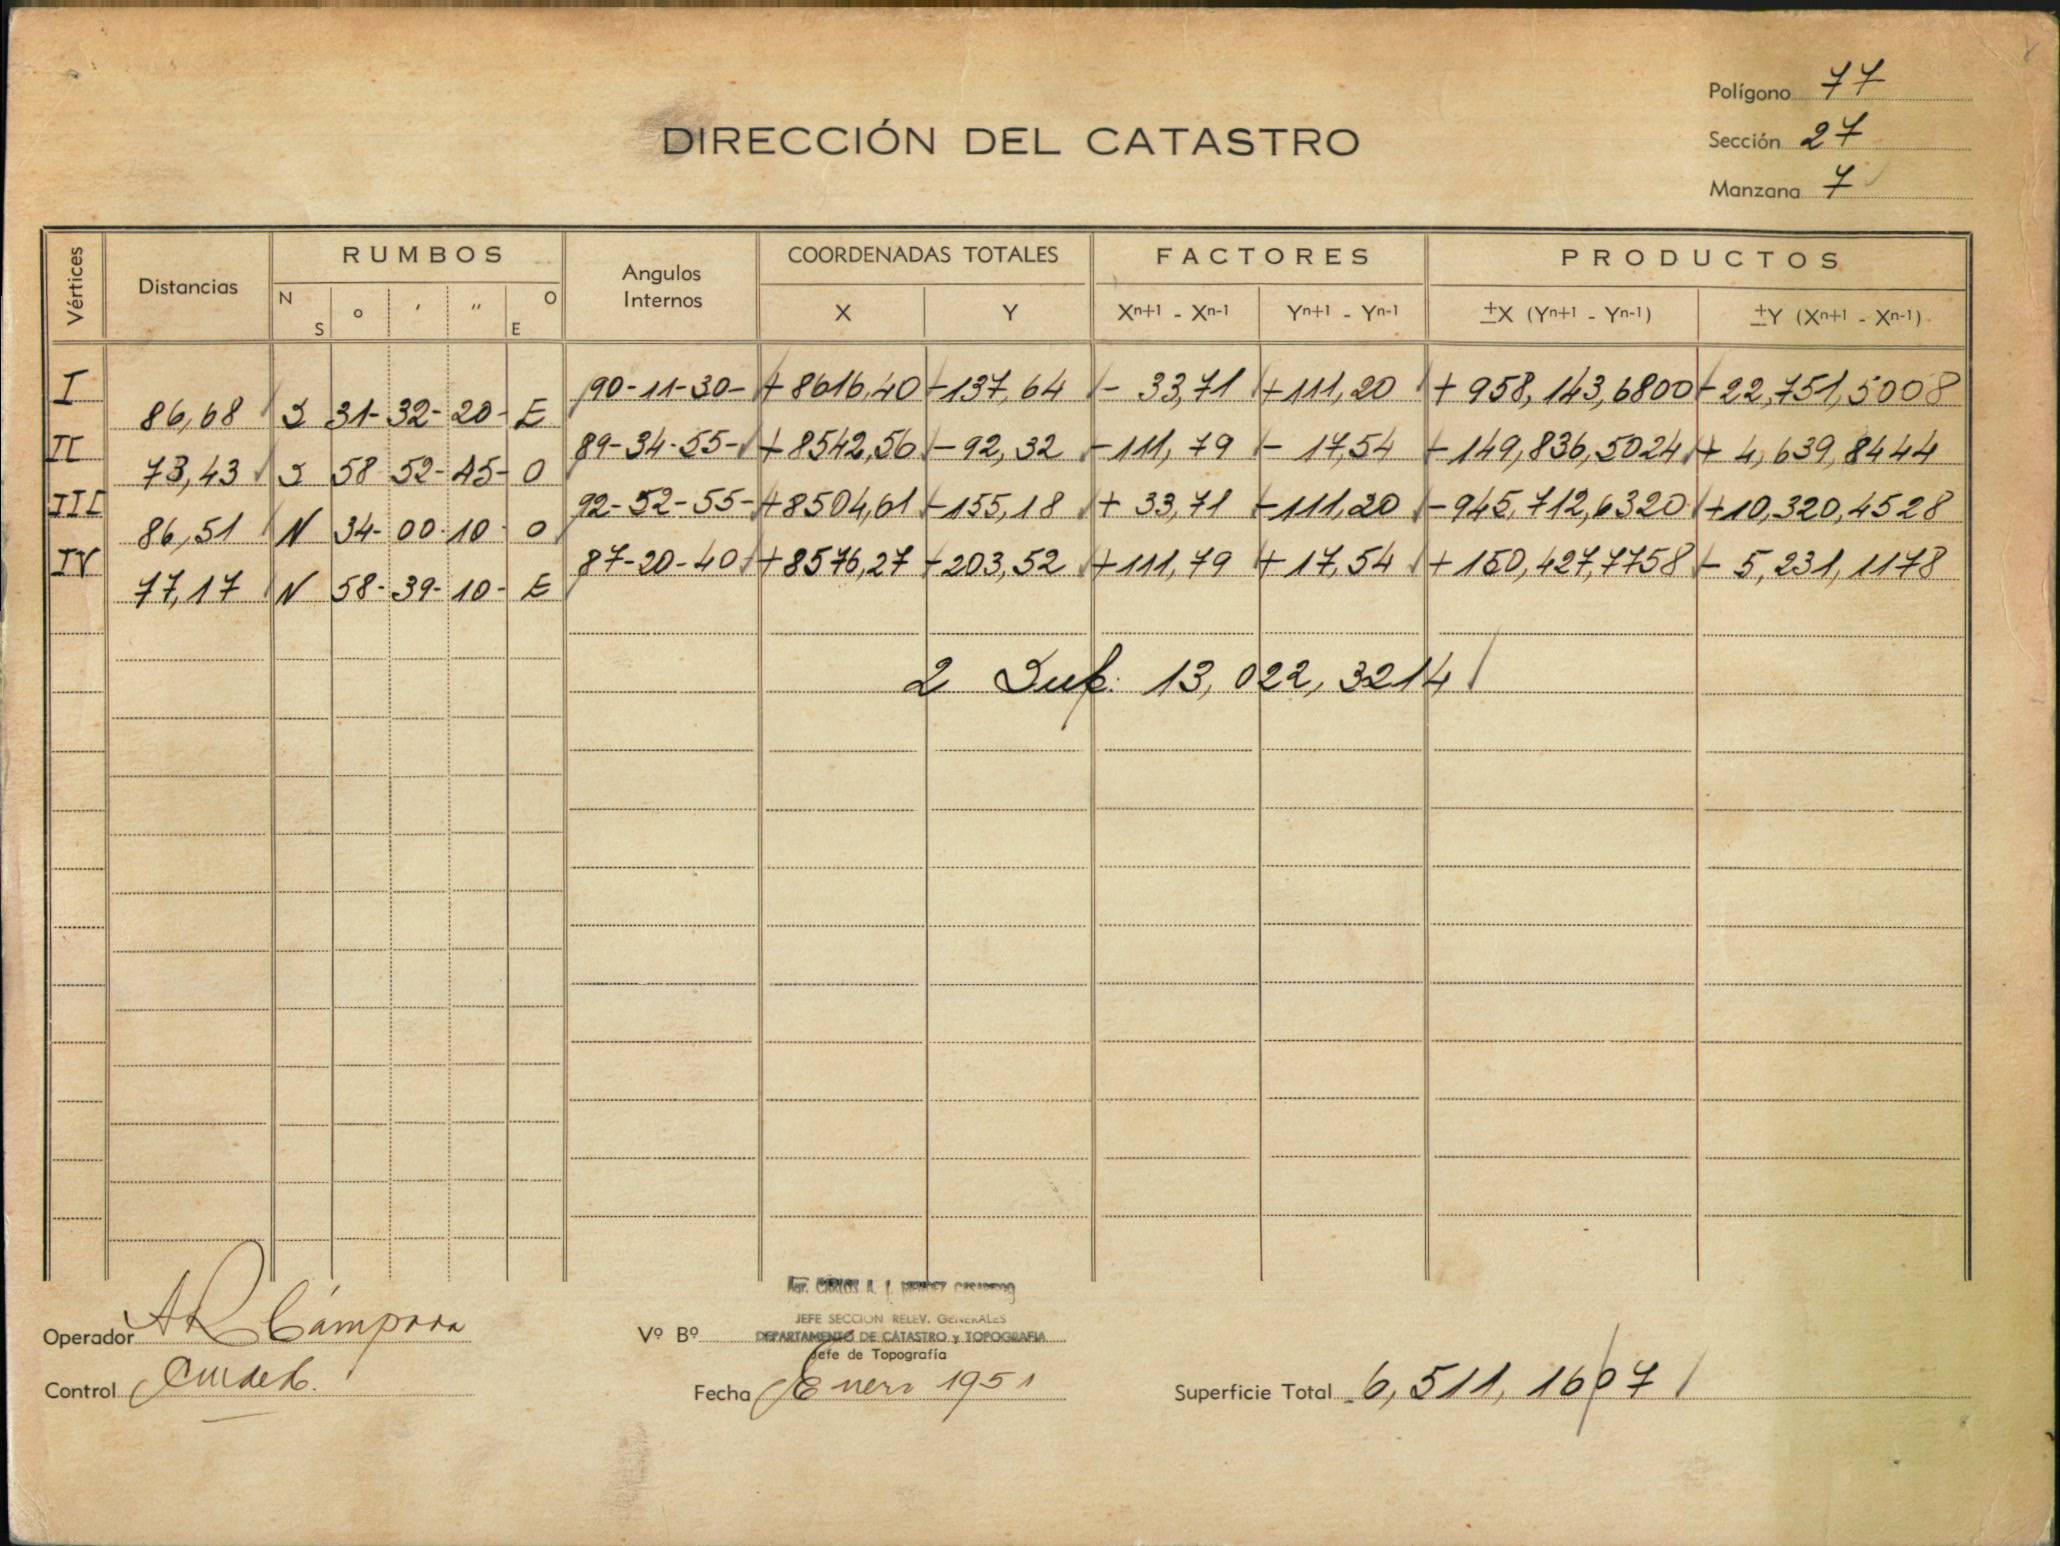 Polígono 77
DIRECCIÓN DEL CATASTRO
Sección 27
Manzana 7
Vértices Distancias RUMBOS Angulos Internos COORDENADAS TOTALES FACTORES PRODUCTOS
N S ° ' " O E X Y Xn+1 - Xn-1 Yn+1 - Yn-1 ±X (Yn+1 - Yn-1) ±Y (Xn+1 - Xn-1)
I 90-11-30- +8616,40 -137,64 - 33,71 +111,20 + 958,143,6800 -22,751,5008
86,68 S 31-32-20- E
II 89-34-55- +8542,56 -92,32 -111,79 - 17,54 -149,836,5024 + 4,639,8444
73,43 S 58-52-45- O
III 92-52-55- +8504,61 -155,18 + 33,71 -111,20 -945,712,6320 +10,320,4528
86,51 N 34-00-10 O
IV 87-20-40 +8576,27 -203,52 +111,79 + 17,54 +150,427,7758 - 5,231,1178
77,17 N 58-39-10- E
2 Sup. 13,022,3214
Operador A R Cámpora
Vº Bº
JEFE SECCION RELEV. GENERALES
DEPARTAMENTO DE CATASTRO y TOPOGRAFIA
Jefe de Topografía
Control
Fecha Enero 1951
Superficie Total 6,511,1607